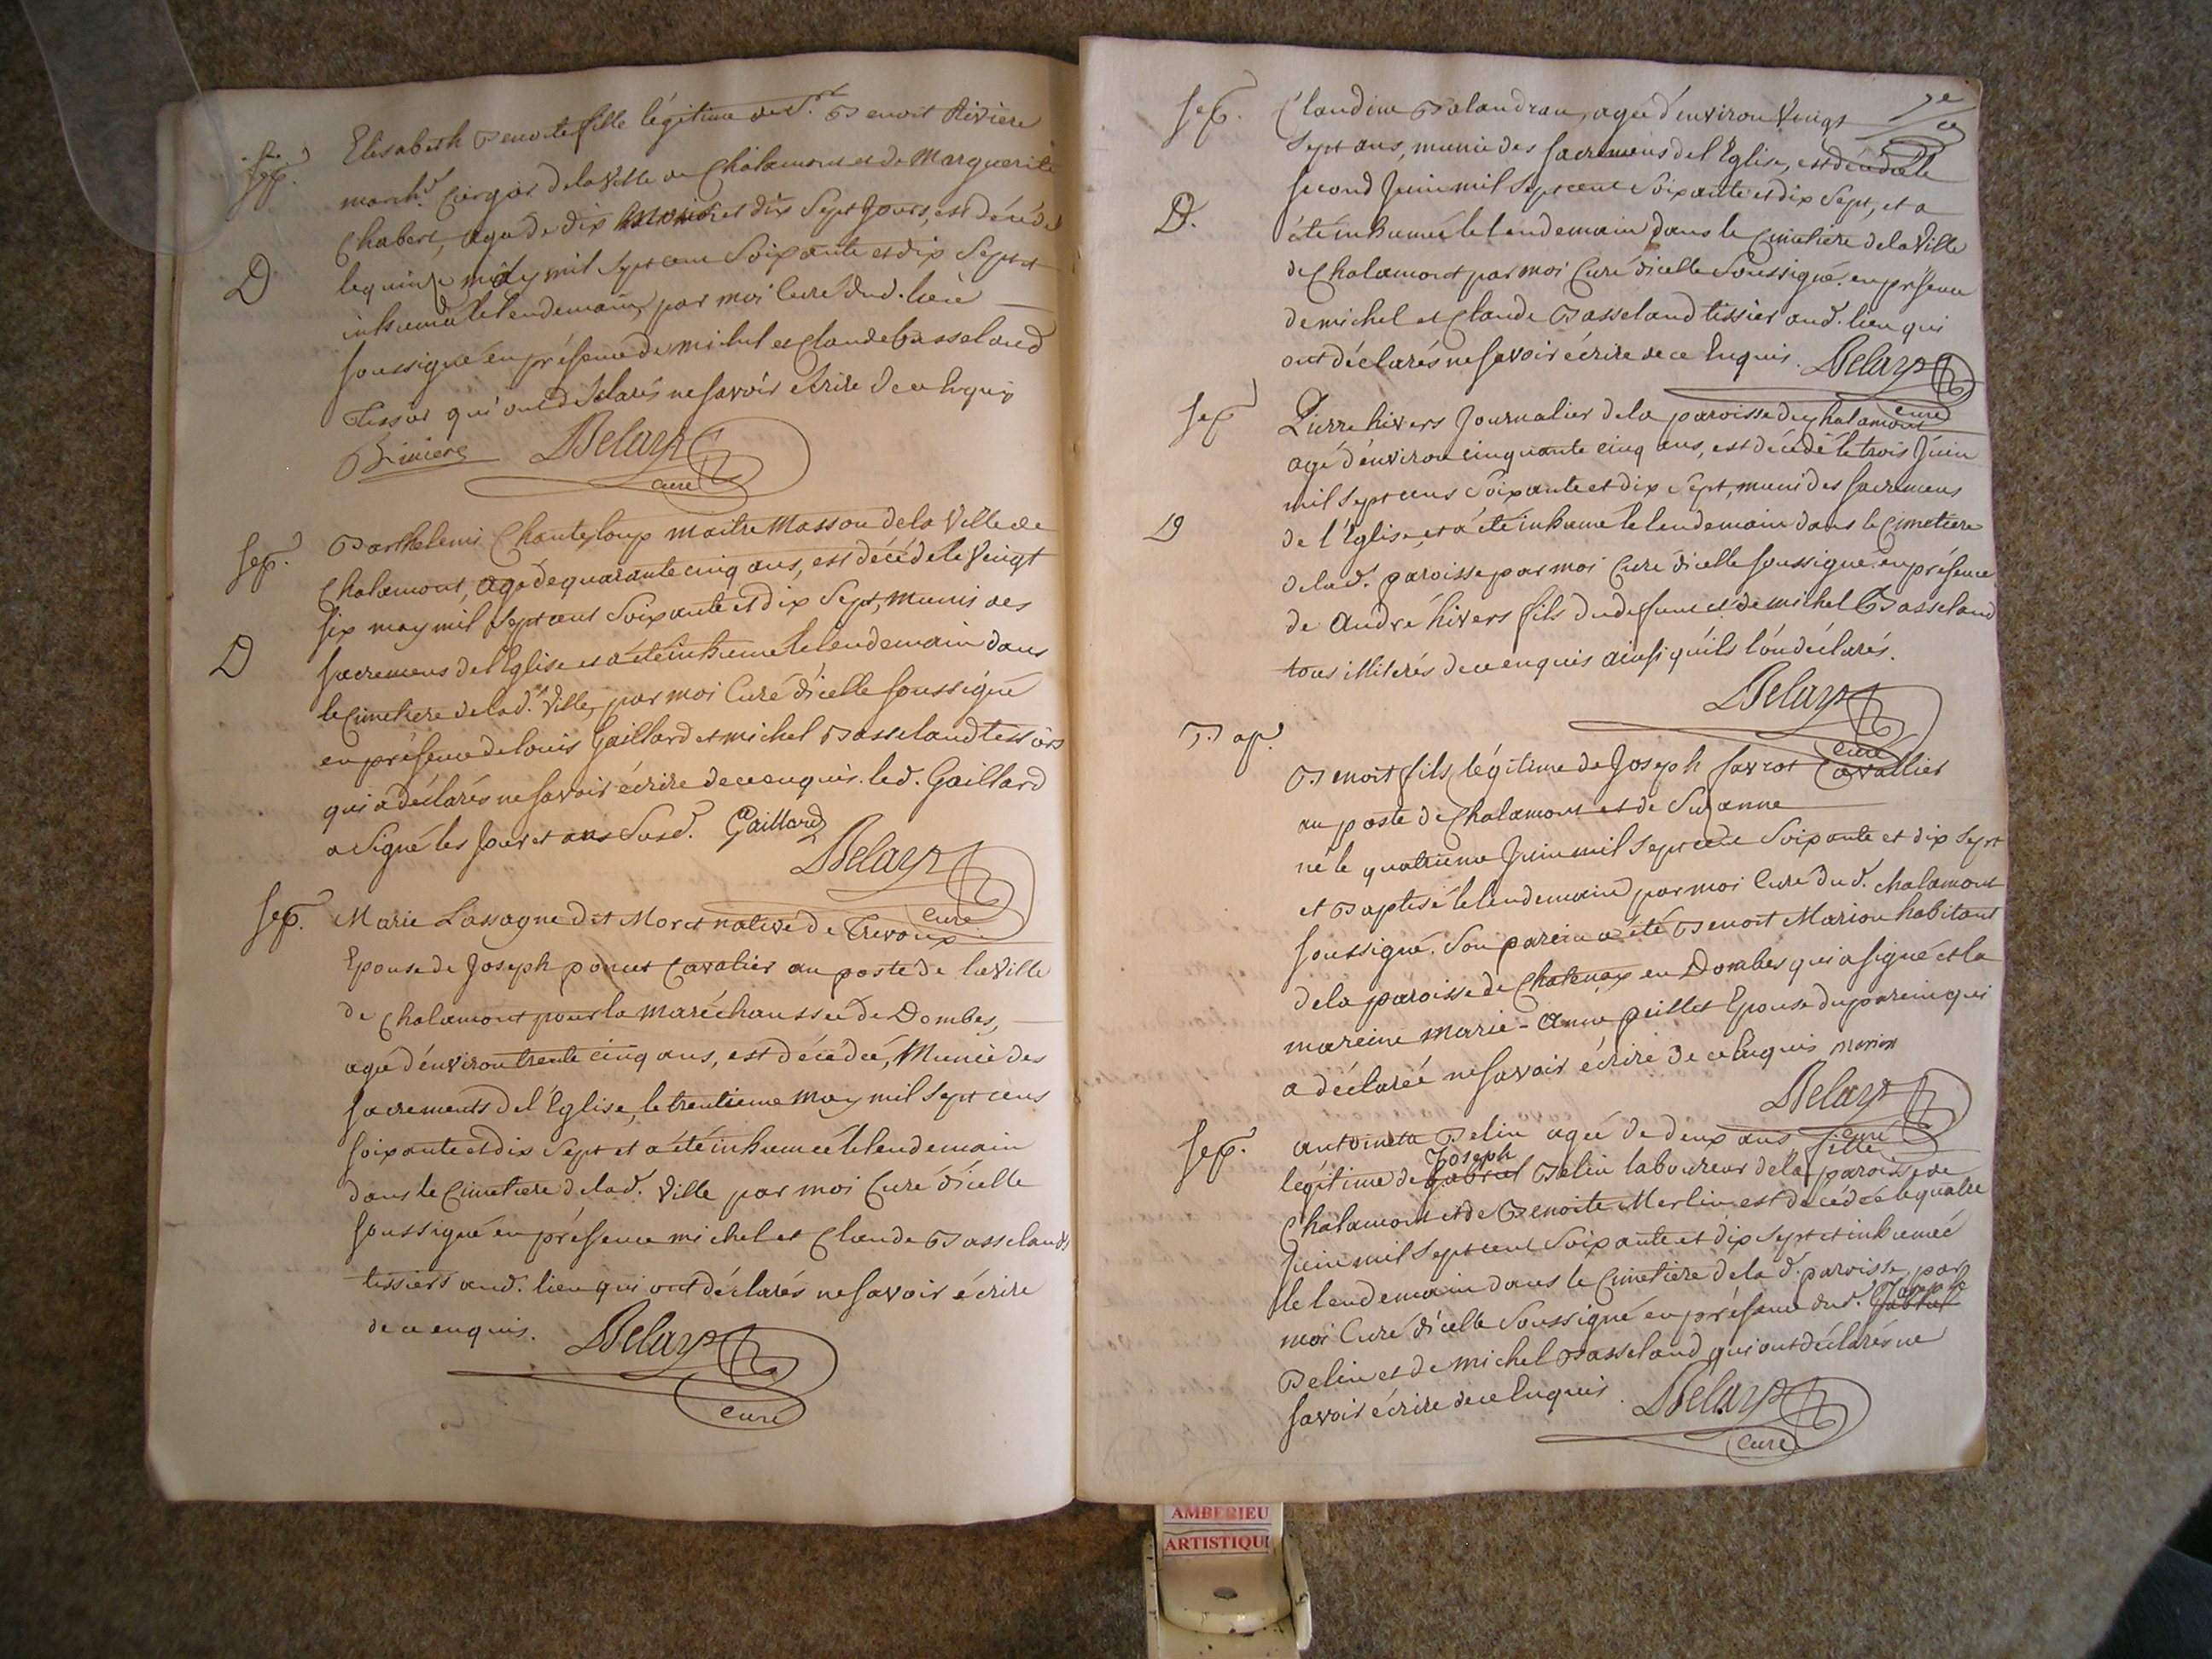 Sep.
Elisabeth Benoite fille légitime du Sr. Benoit Riviere
march.d Cirgier de la Ville de Chalamont et de Marguerite
Chabert, agée de dix mois et dix Sept Jours, est décédé
D
le quinze may mil Sept cent Soixante et dix Sept et
inhumé le lendemain par moi Curé dud. lieu
soussigné en présence de michel et Claude Basseland
Tissier qui ont déclarés ne savoir écrire de ce Enquis
B Riviere Delaye
curé
Sep.
Barthelemi Chanteloup maitre Masson de la Ville de
Chalamont, agé de quarante cinq ans, est décédé le Vingt
six may mil Sept cent Soixante et dix Sept, munis des
D
sacremens de l'Eglise et a été inhumé le lendemain dans
le Cimetiere de lad. Ville, par moi Curé d'icelle soussigné
en présence de louis Gaillard et michel Basseland tissiers
qui a déclarés ne savoir écrire de ce enquis. led. Gaillard
a Signé les Jour et ans Susd. Gaillard
Delaye
curé
Sep.
Marie Lassagne dit Moret native de Trevoux
Epouse de Joseph poncet Cavalier au poste de la Ville
de Chalamont pour la maréchaussée de Dombes,
agé d'environ trente cinq ans, est décédée, Munie des
sacrements de l'Eglise, le trentieme may mil Sept cens
soixante et dix Sept et a été inhumée le lendemain
dans le Cimetiere de lad. Ville par moi Curé d'icelle
soussigné en présence michel et Claude Basseland
tissiers aud. lieu qui ont déclarés ne savoir écrire
de ce enquis. Delaye
curé
Sep.
Claudine Balandran, agée d'environ Vingt
Sept ans, munie des sacremens de l'Eglise, est décédée le
second Juin mil Sept cent Soixante et dix Sept, et a
D.
été inhumée le lendemain dans le Cimetiere de la Ville
de Chalamont par moi Curé d'icelle Soussigné. en présence
de michel et Claude Basseland tissier aud. lieu qui
ont déclarés ne savoir écrire de ce Enquis. Delaye
curé
Sep
Pierre hivers Journalier de la paroisse de Chalamont
agé d'environ cinquante cinq ans, est décédé le trois Juin
mil Sept cens Soixante et dix Sept, muni des sacremens
D
de l'Eglise, et a été inhumé le lendemain dans le Cimetiere
de lad. paroisse par moi Curé d'icelle soussigné en présence
de André hivers fils du defunt et de michel Basseland
tous illiterés de ce enquis ainsi qu'ils l'on déclarés.
Delaye
curé
Bap.
Benoit fils légitime de Joseph favrot Cavallier
au poste de Chalamont et de Suzanne
né le quatrieme Juin mil Sept cent Soixante et dix Sept
et Baptisé le lendemain par moi Curé dud. chalamont
soussigné. Son parein a été Benoit Marion habitant
de la paroisse de Chatenay en Dombes qui a signé et la
mareine marie-Anne peillet Epouse du parein qui
a déclarée ne savoir écrire de ce Enquis marion
Delaye
curé
Sep.
antoineta Belin agée de deux ans fille
Joseph
légitime de gabriel Belin laboureur de la paroisse de
Chalamont et de Benoite Merlin est décédée le quatre
Juin mil Sept cent Soixante et dix Sept et inhumée
le lendemain dans le Cimetiere de la d. paroisse par
Joseph
moi Curé d'icelle Soussigné en présence dud. Gabriel
Belin et de michel Basseland qui ont déclarés ne
savoir écrire de ce Enquis. Delaye
curé
AMBERIEU
ARTISTIQU